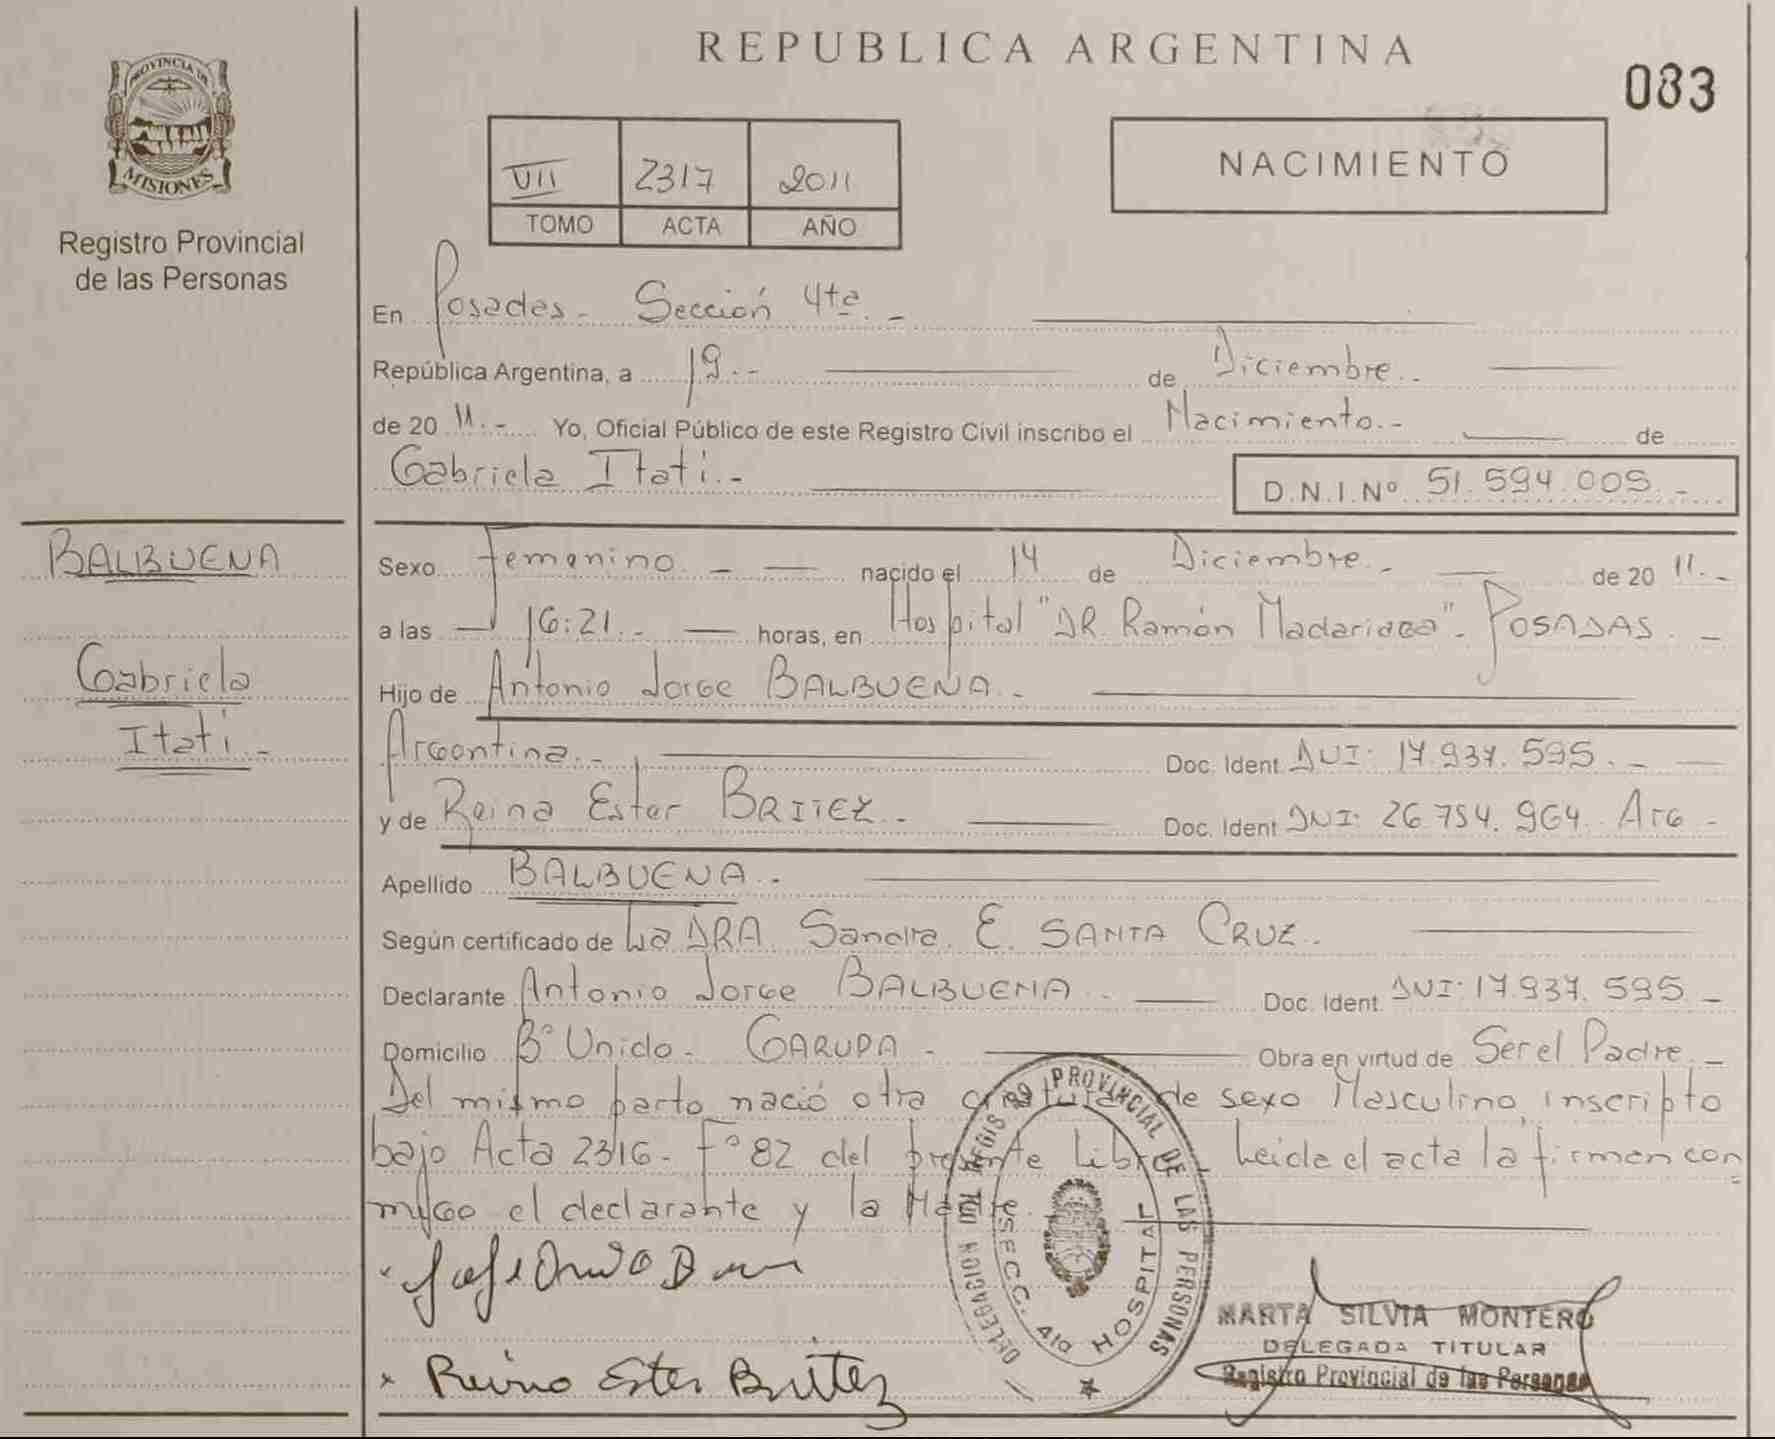 REPUBLICA ARGENTINA
083
PROVINCIA DE
MISIONES
Registro Provincial
de las Personas
VII 2317 2011
TOMO ACTA AÑO
NACIMIENTO
En Posadas - Sección 4ta. -
República Argentina, a 19. - de Diciembre. -
de 20 11. - Yo, Oficial Público de este Registro Civil inscribo el Nacimiento. - de
Gabriela Itati. -
D.N.I.Nº 51.594.005. -
BALBUENA
Gabriela
Itati. -
Sexo Femenino - nacido el 14 de Diciembre. - de 20 11. -
a las 16:21. - horas, en Hospital "DR. Ramón Madariaga". POSADAS. -
Hijo de Antonio Jorge BALBUENA. -
Argentina. - Doc. Ident. DNI: 17.937.595. -
y de Reina Ester BRITEZ. - Doc. Ident. DNI: 26.754.964. Arg -
Apellido BALBUENA. -
Según certificado de La DRA. Sandra E. SANTA CRUZ. -
Declarante Antonio Jorge BALBUENA. - Doc. Ident. DNI: 17.937.595. -
Domicilio Bº Unido - GARUPA - Obra en virtud de Ser el Padre. -
Del mismo parto nació otra creatura de sexo Masculino, inscripto
bajo Acta 2316 - Fº 82 del presente Libro. Leida el acta la firman con
migo el declarante y la Madre. -
REGISTRO PROVINCIAL DE LAS PERSONAS
DELEGACION
SECC. 4ta HOSPITAL
Reina Ester Britez
MARTA SILVIA MONTERO
DELEGADA TITULAR
Registro Provincial de las Personas